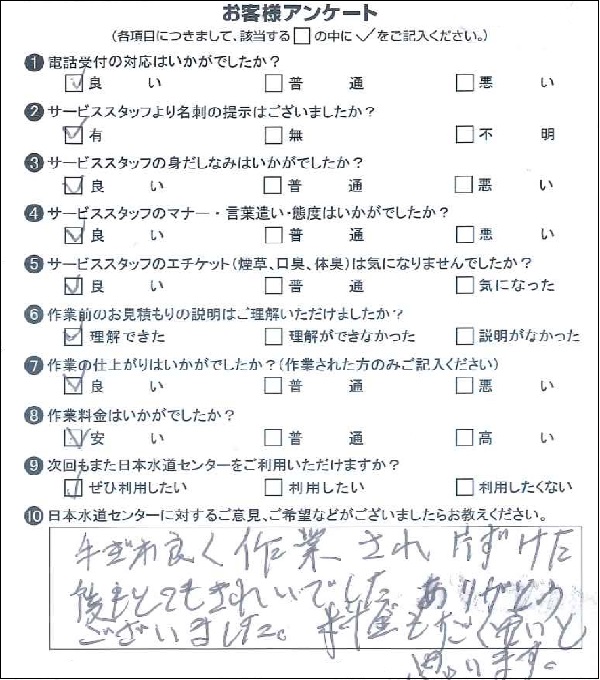 お客様アンケート
(各項目につきまして、該当する□の中に✓をご記入ください。)
❶電話受付の対応はいかがでしたか?
☑良い □普通 □悪い
❷サービススタッフより名刺の提示はございましたか?
☑有 □無 □不明
❸サービススタッフの身だしなみはいかがでしたか?
☑良い □普通 □悪い
❹サービススタッフのマナー・言葉遣い・態度はいかがでしたか?
☑良い □普通 □悪い
❺サービススタッフのエチケット(煙草、口臭、体臭)は気になりませんでしたか?
☑良い □普通 □気になった
❻作業前のお見積もりの説明はご理解いただけましたか?
☑理解できた □理解ができなかった □説明がなかった
❼作業の仕上がりはいかがでしたか?(作業された方のみご記入ください)
☑良い □普通 □悪い
❽作業料金はいかがでしたか?
☑安い □普通 □高い
❾次回もまた日本水道センターをご利用いただけますか?
☑ぜひ利用したい □利用したい □利用したくない
❿日本水道センターに対するご意見、ご希望などがございましたらお教えください。
手ぎわ良く作業され片ずけた
後もとてもきれいでした ありがとう
ございました。料金も安いと
思います。